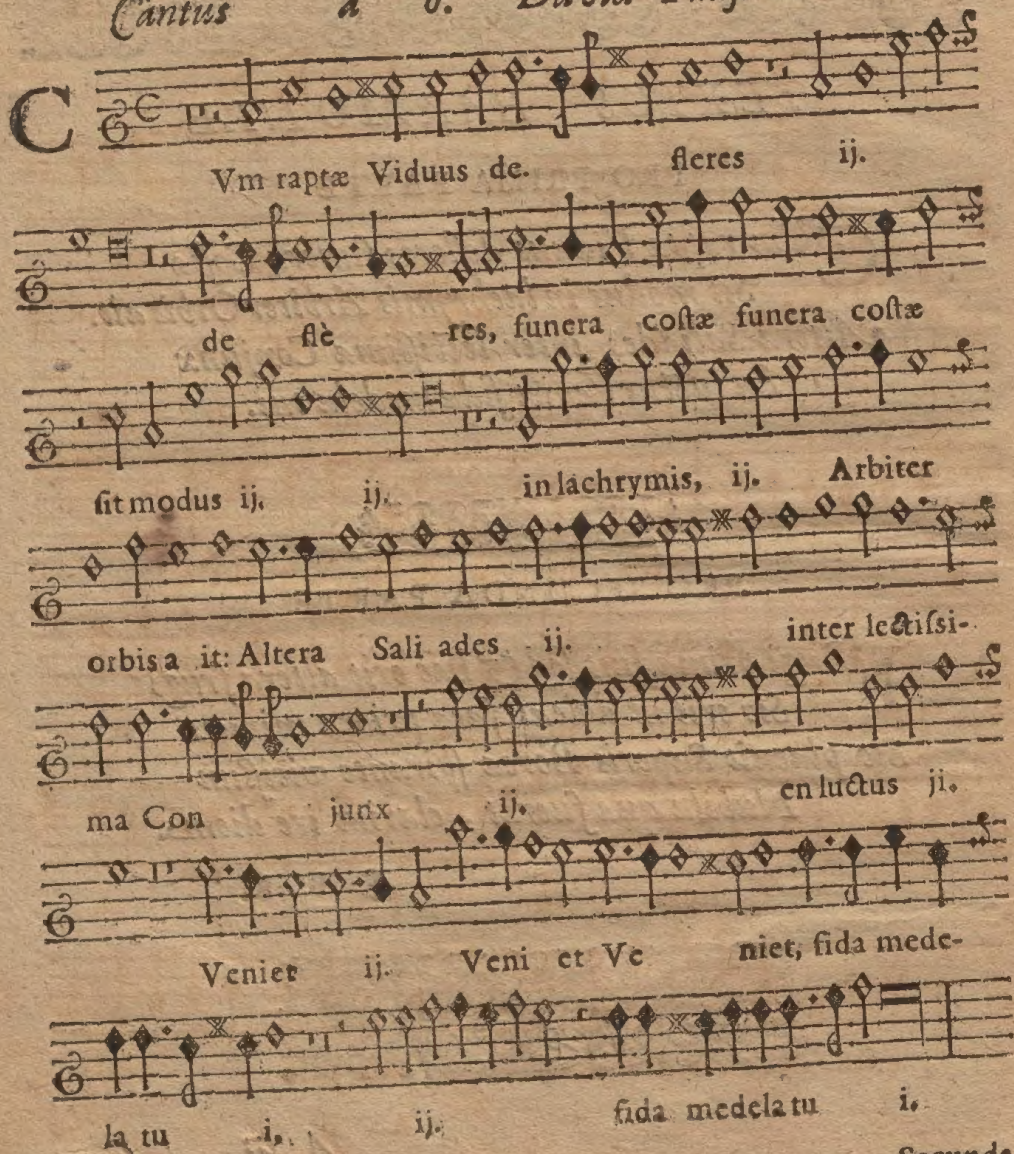 Cantus a 6.
C
Vm raptæ Viduus de. fleres ij.
de flè res, funera costæ funera costæ
sit modus ij. ij. in lachrymis, ij. Arbiter
orbis a it: Altera Sali ades ij. inter lectissi-
ma Con junx ij. en luctus ji.
Veniet ij. Veni et Ve niet, fida mede-
la tu i, ij. fida medela tu i.